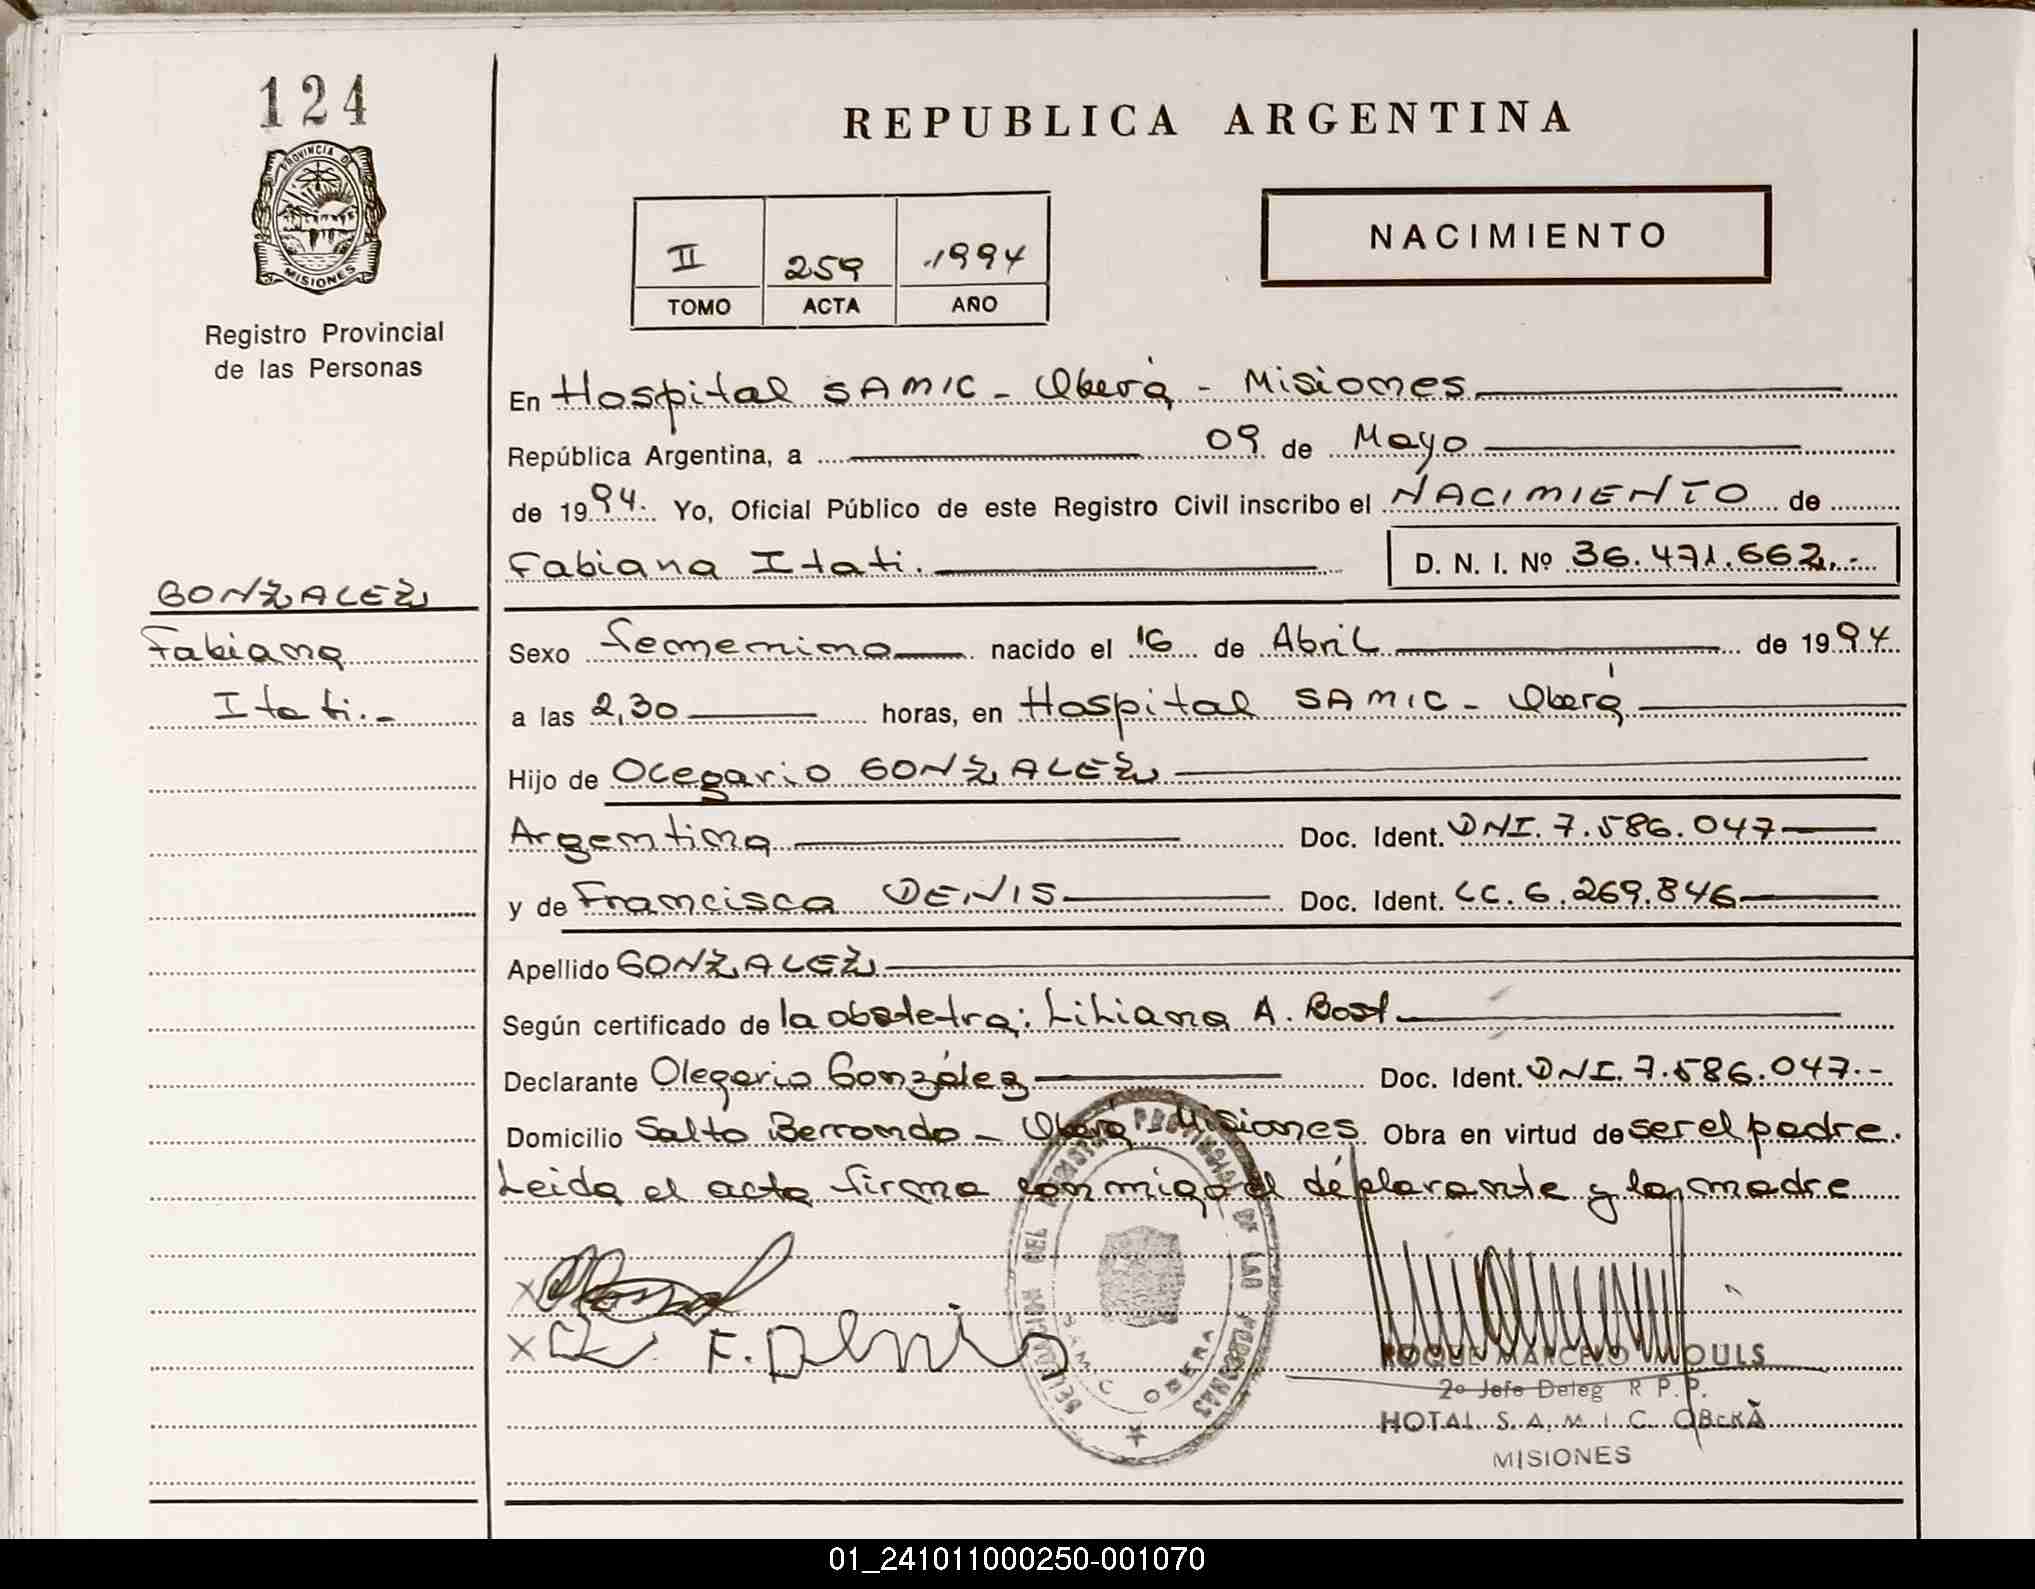 124
PROVINCIA DE
MISIONES
Registro Provincial
de las Personas
REPUBLICA ARGENTINA
II 259 1994
TOMO ACTA AÑO
NACIMIENTO
En Hospital SAMIC - Oberá - Misiones
República Argentina, a 09 de Mayo
de 1994. Yo, Oficial Público de este Registro Civil inscribo el NACIMIENTO de
Fabiana Itati. D. N. I. Nº 36.471.662.-
GONZALEZ
Fabiana
Itati.-
Sexo femenino nacido el 16 de Abril de 1994
a las 2,30 horas, en Hospital SAMIC - Oberá
Hijo de Olegario GONZALEZ
Argentina Doc. Ident. DNI. 7.586.047
y de Francisca DENIS Doc. Ident. LC. 6.269.846
Apellido GONZALEZ
Según certificado de la obstetra: Liliana A. Bost
Declarante Olegario González Doc. Ident. DNI. 7.586.047.-
Domicilio Salto Berrondo - Oberá Misiones Obra en virtud de ser el padre.
Leida el acta firma conmigo el déplarante y la madre
F. Denis
DELEGACION DEL REGISTRO PROVINCIAL DE LAS PERSONAS
SAMIC OBERA
ROQUE MARCELO
2º Jefe Deleg R P.P.
HOTAL S. A. M. I. C. OBERÃ
MISIONES
01_241011000250-001070